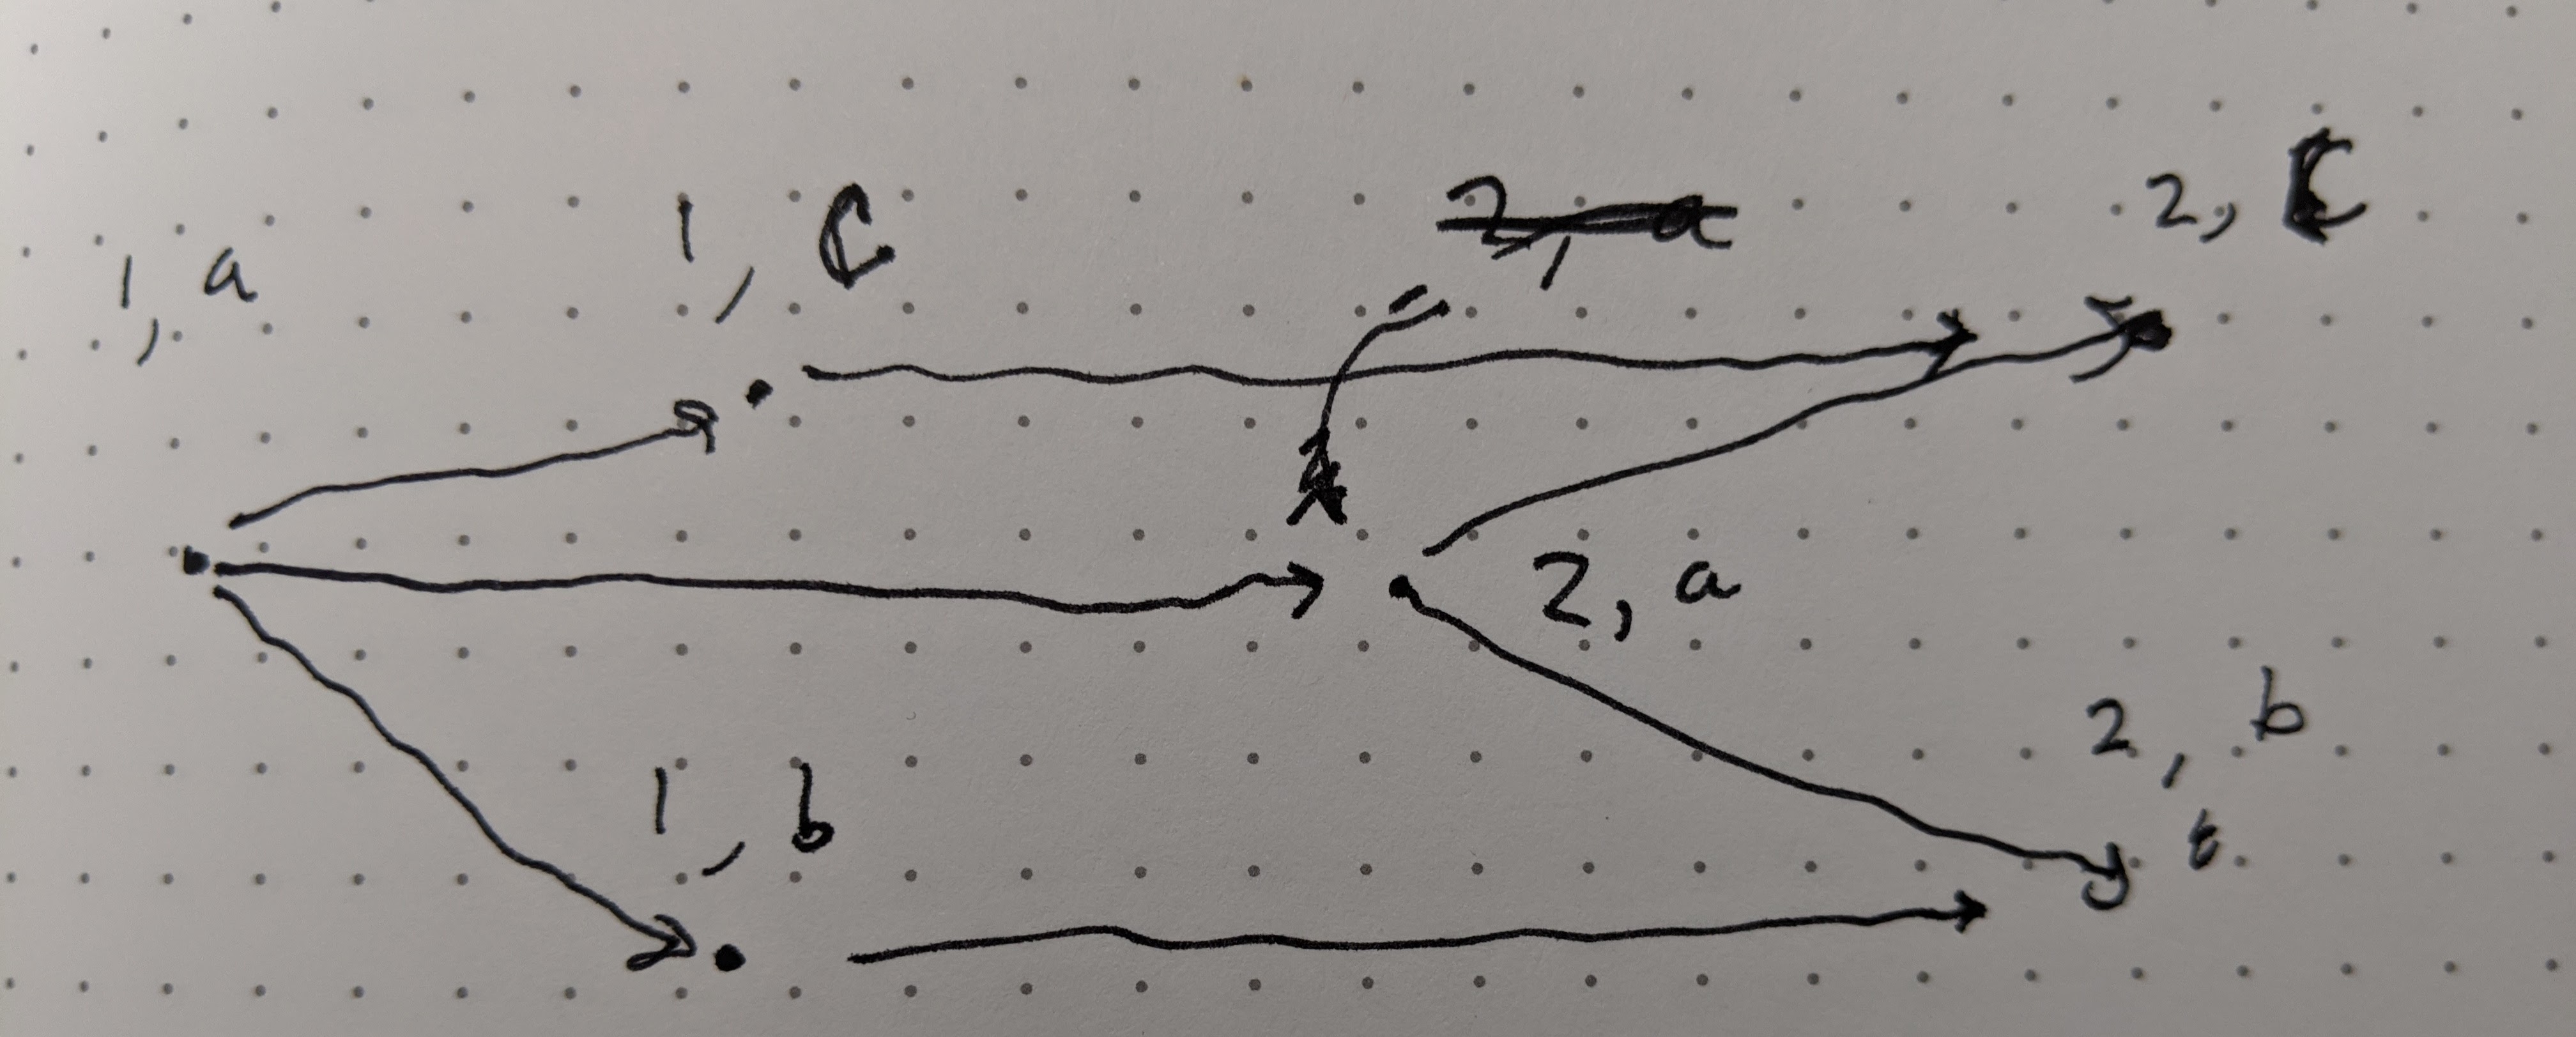 1, a
1, c
2, a
2, c
2, a
1, b
2, b